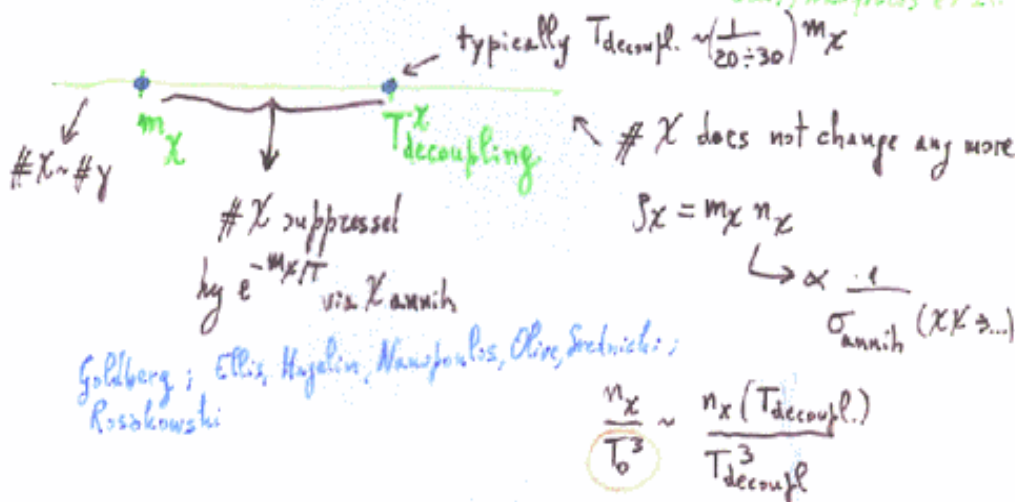 typically T_decoupl. ~ (1/20÷30) m_χ
m_χ
T^χ_decoupling
#χ ~ #γ
# χ does not change any more
# χ suppressed
by e^{-m_χ/T} via χ annih
ρ_χ = m_χ n_χ
↳ ∝ 1/σ_annih (χχ → ...)
Goldberg; Ellis, Hagelin, Nanopoulos, Olive, Srednicki;
n_χ/T_0^3 ~ n_χ(T_decoupl.)/T^3_decoupl